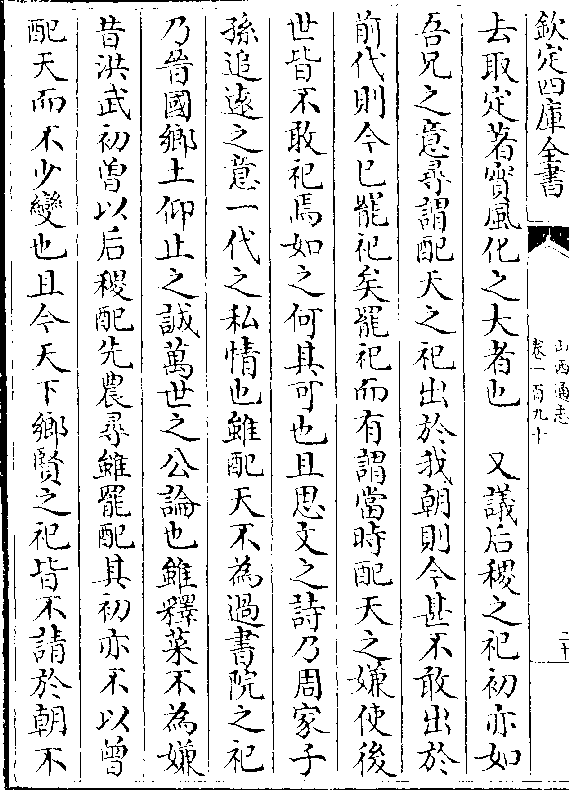 欽定四庫全書
山西通志
卷一百九十
二十
去取定著實風化之大者也　又議后稷之祀初亦如
吾兄之意尋謂配天之祀出於我朝則今甚不敢出於
前代則今已罷祀矣罷祀而有謂當時配天之嫌使後
世皆不敢祀焉如之何其可也且思文之詩乃周家子
孫追遠之意一代之私情也雖配天不為過書院之祀
乃晉國鄉土仰止之誠萬世之公論也雖釋菜不為嫌
昔洪武初曾以后稷配先農尋雖罷配其初亦不以曾
配天而不少變也且今天下鄉賢之祀皆不請於朝不